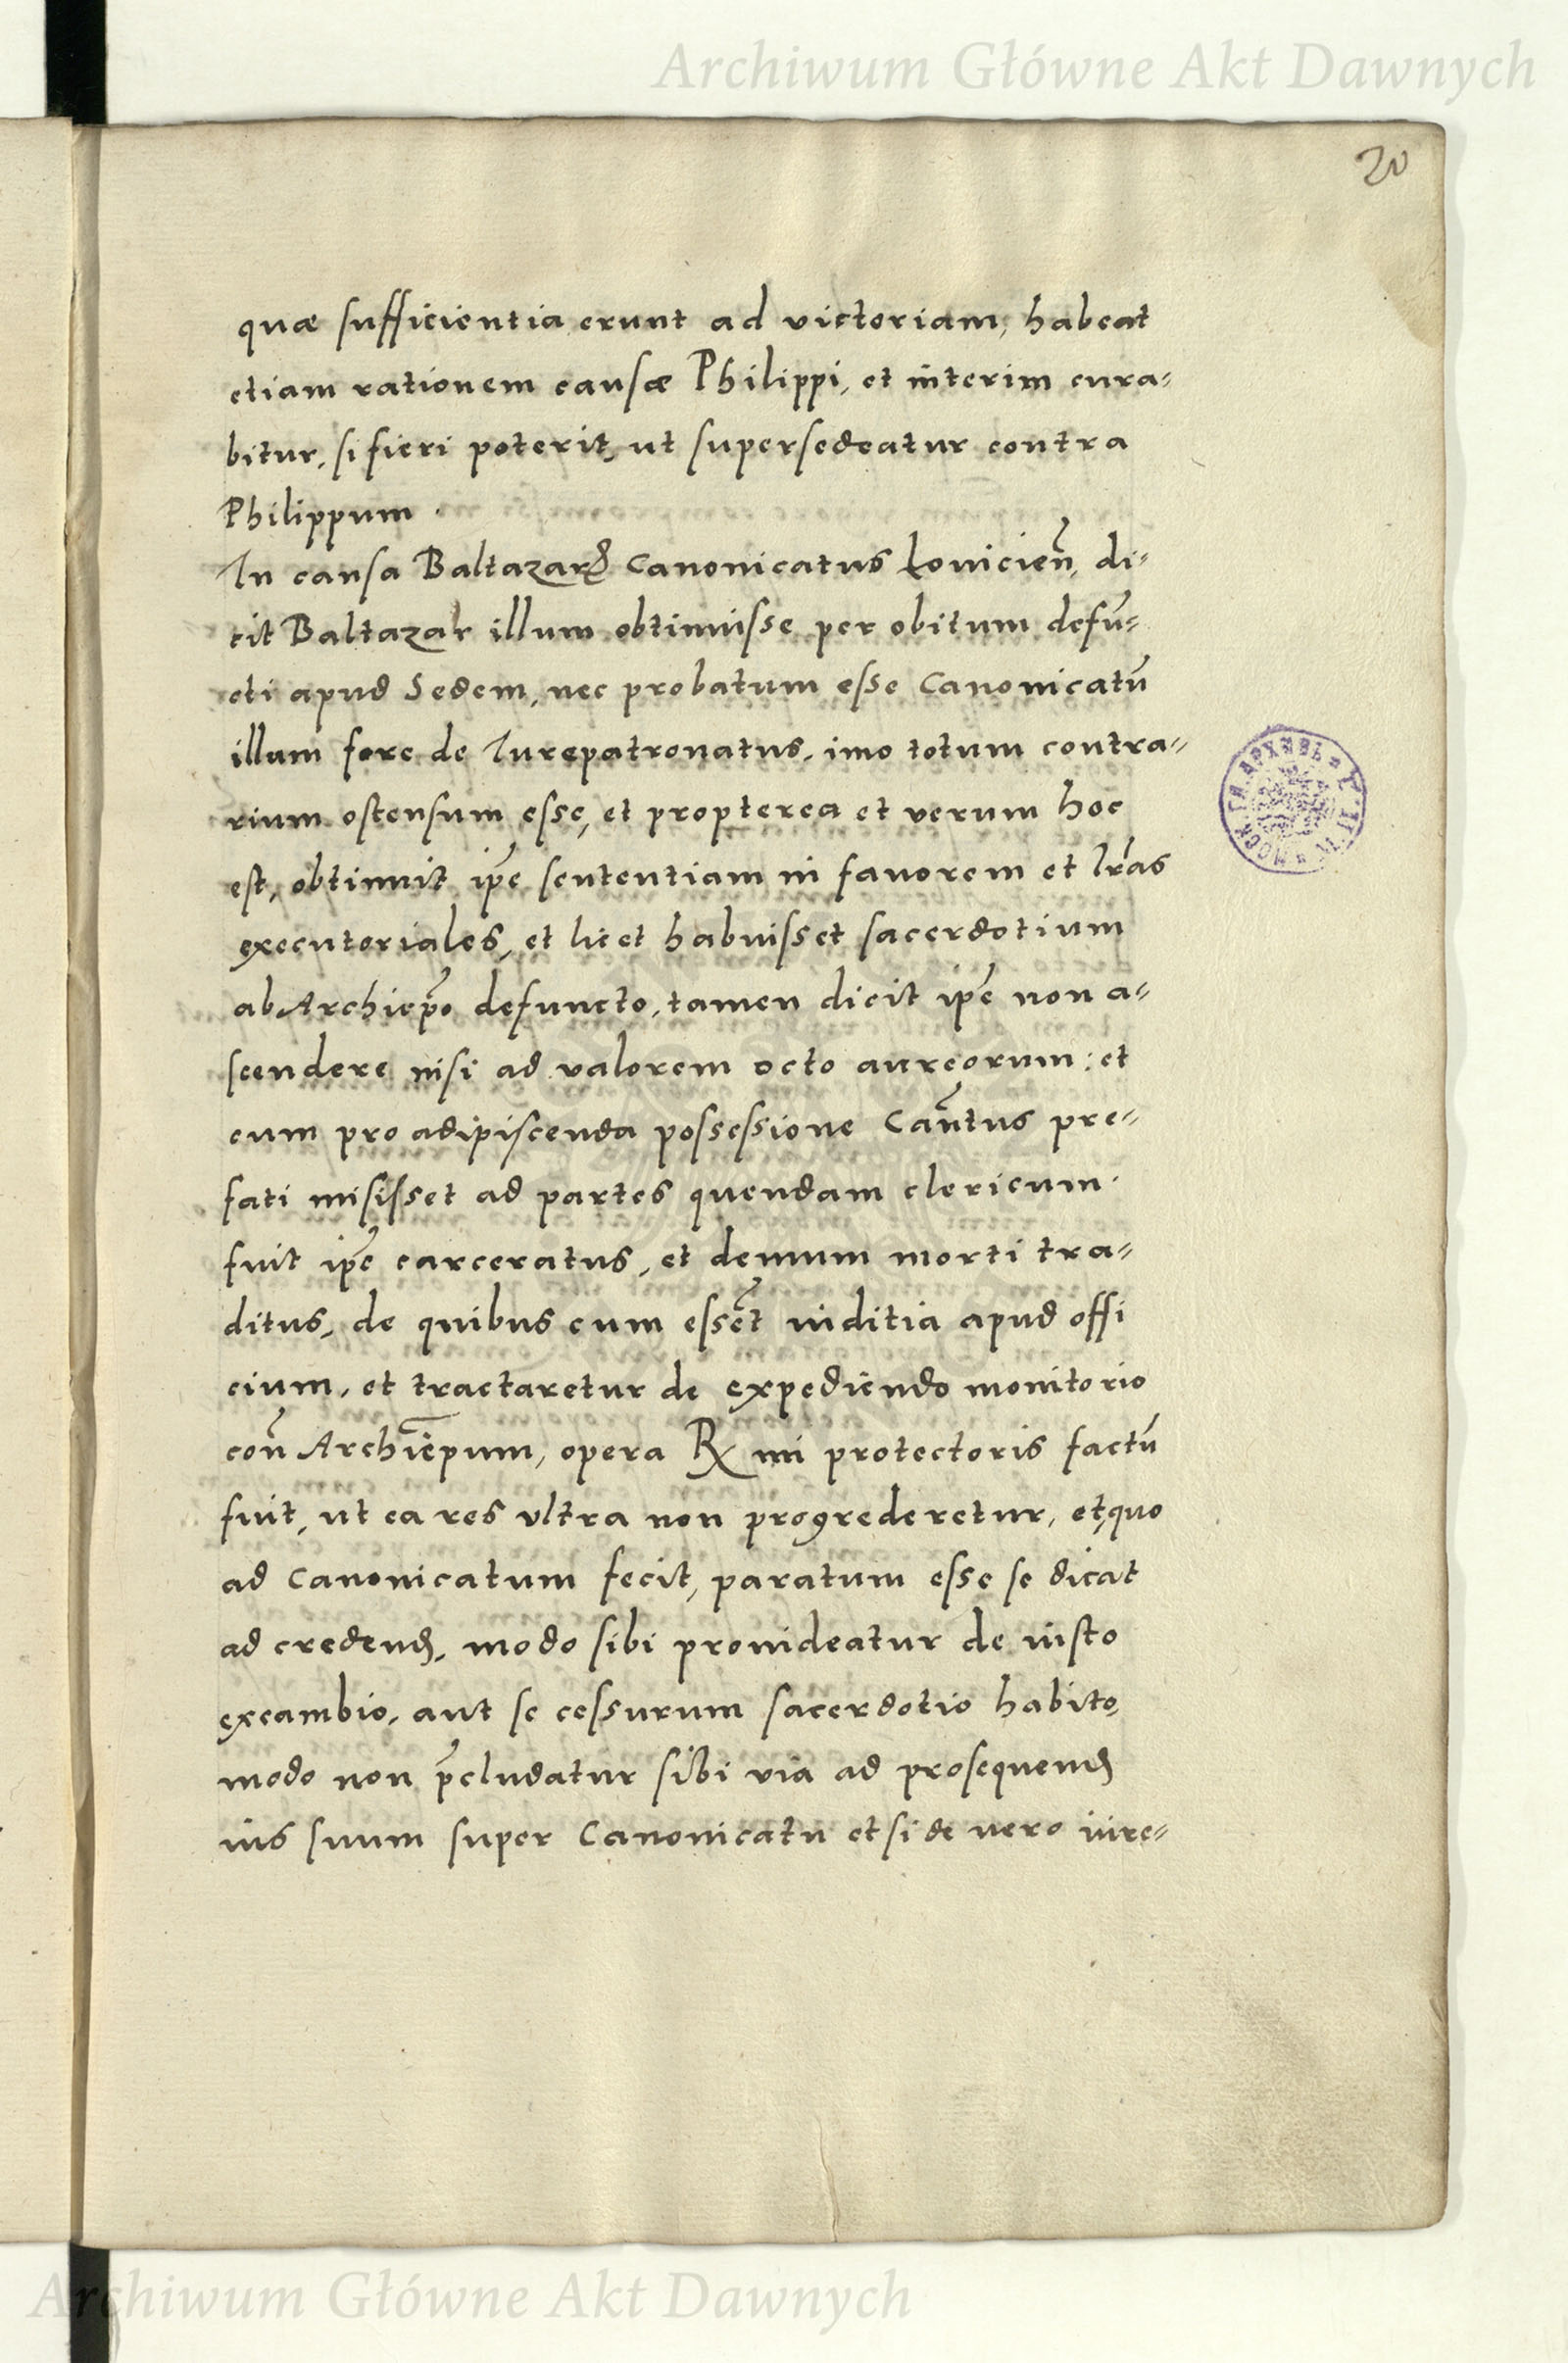 Archiwum Główne Akt Dawnych
20
quæ sufficientia erunt ad victoriam, habeat
etiam rationem causæ Philippi, et interim cura=
bitur, si fieri poterit, ut supersedeatur contra
Philippum.
In causa Baltazar Canonicatus Łouicień, di=
cit Baltazar illum obtinuisse per obitum defū=
cti apud Sedem, nec probatum esse Canonicatū
illum fore de Iurepatronatus, imo totum contra=
rium ostensum esse, et propterea et verum hoc
est, obtinuit ip̃e sententiam in fauorem et lr̃as
executoriales, et licet habuisset sacerdotium
ab Archiep̃o defuncto, tamen dicit ip̃e non a=
scendere nisi ad valorem octo aureorum: et
cum pro adipiscenda possessione Cañtus pre=
fati misisset ad partes quendam clericum.
fuit ip̃e carceratus, et demum morti tra=
ditus, de quibus cum essēt inditia apud offi
cium, et tractaretur de expediendo monitorio
coñ Archiēpum, opera R mi protectoris factū
fuit, ut ea res ultra non progrederetur, et quo
ad Canonicatum fecit, paratum esse se dicat
ad credend, modo sibi prouideatur de iusto
excambio, aut se cessurum sacerdotio habito,
modo non p̃cludatur sibi via ad prosequend
ius suum super Canonicatu et si de uero iure=
Archiwum Główne Akt Dawnych